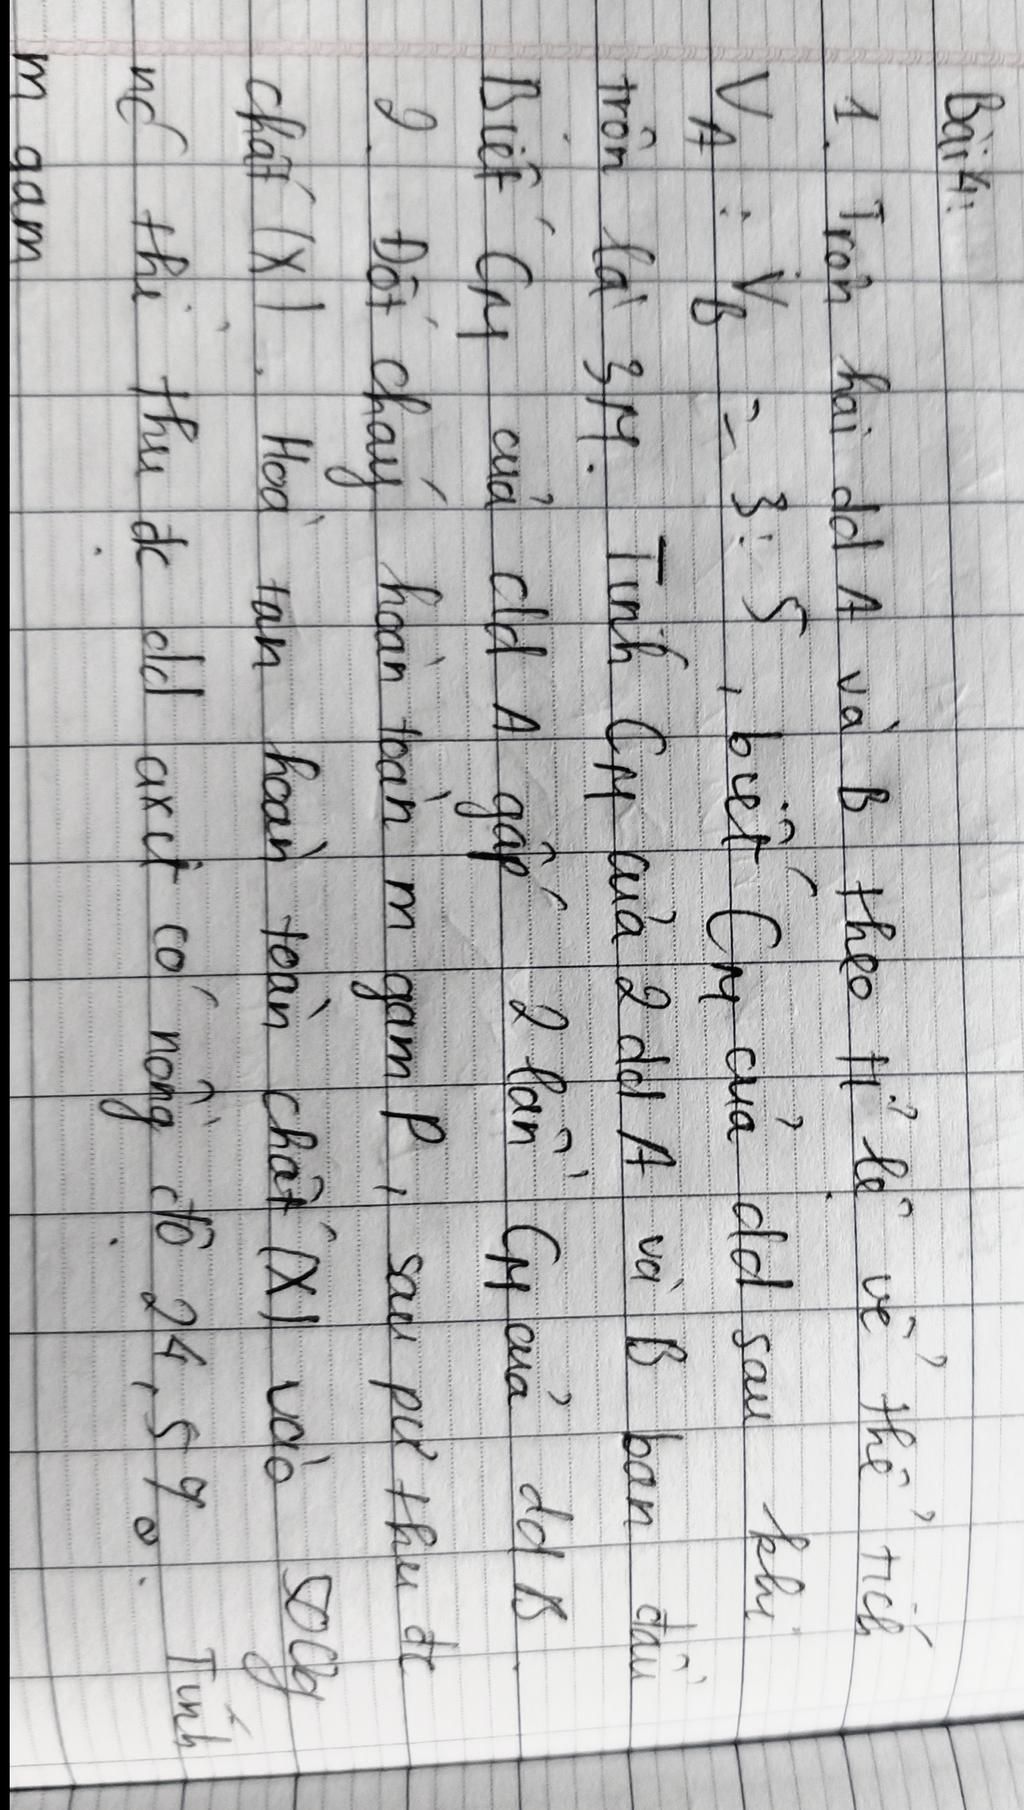 Bài 4:
1. Trộn hai dd A và B theo tỉ lệ về thể tích
VA : VB = 3 : 5, biết CM của dd sau khi
trộn là 3M. Tính CM của 2 dd A và B ban đầu
Biết CM của dd A gấp 2 lần CM của dd B
2. Đốt cháy hoàn toàn m gam P, sau pư thu đc
chất (X). Hoà tan hoàn toàn chất (X) vào 500g
nc thì thu đc dd axit có nồng độ 24,5%. Tính
m gam